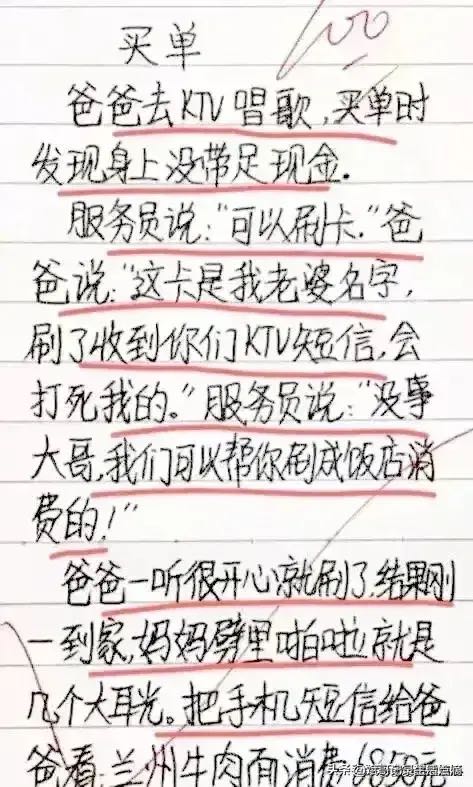 100
买单
爸爸去KTV唱歌,买单时
发现身上没带足现金.
服务员说:"可以刷卡."爸
爸说:"这卡是我老婆名字,
刷了收到你们KTV短信,会
打死我的。"服务员说:"没事
大哥,我们可以帮你刷成饭店消
费的!"
爸爸一听很开心就刷了,结果刚
一到家,妈妈劈里啪啦就是
几个大耳光。把手机短信给爸
爸看:兰州牛肉面消费6850元